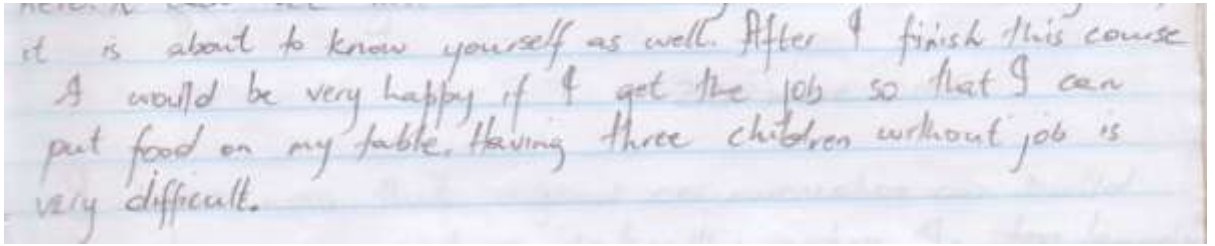 it is about to know yourself as well. After I finish this course
I would be very happy if I get the job so that I can
put food on my table. Having three children without job is
very difficult.